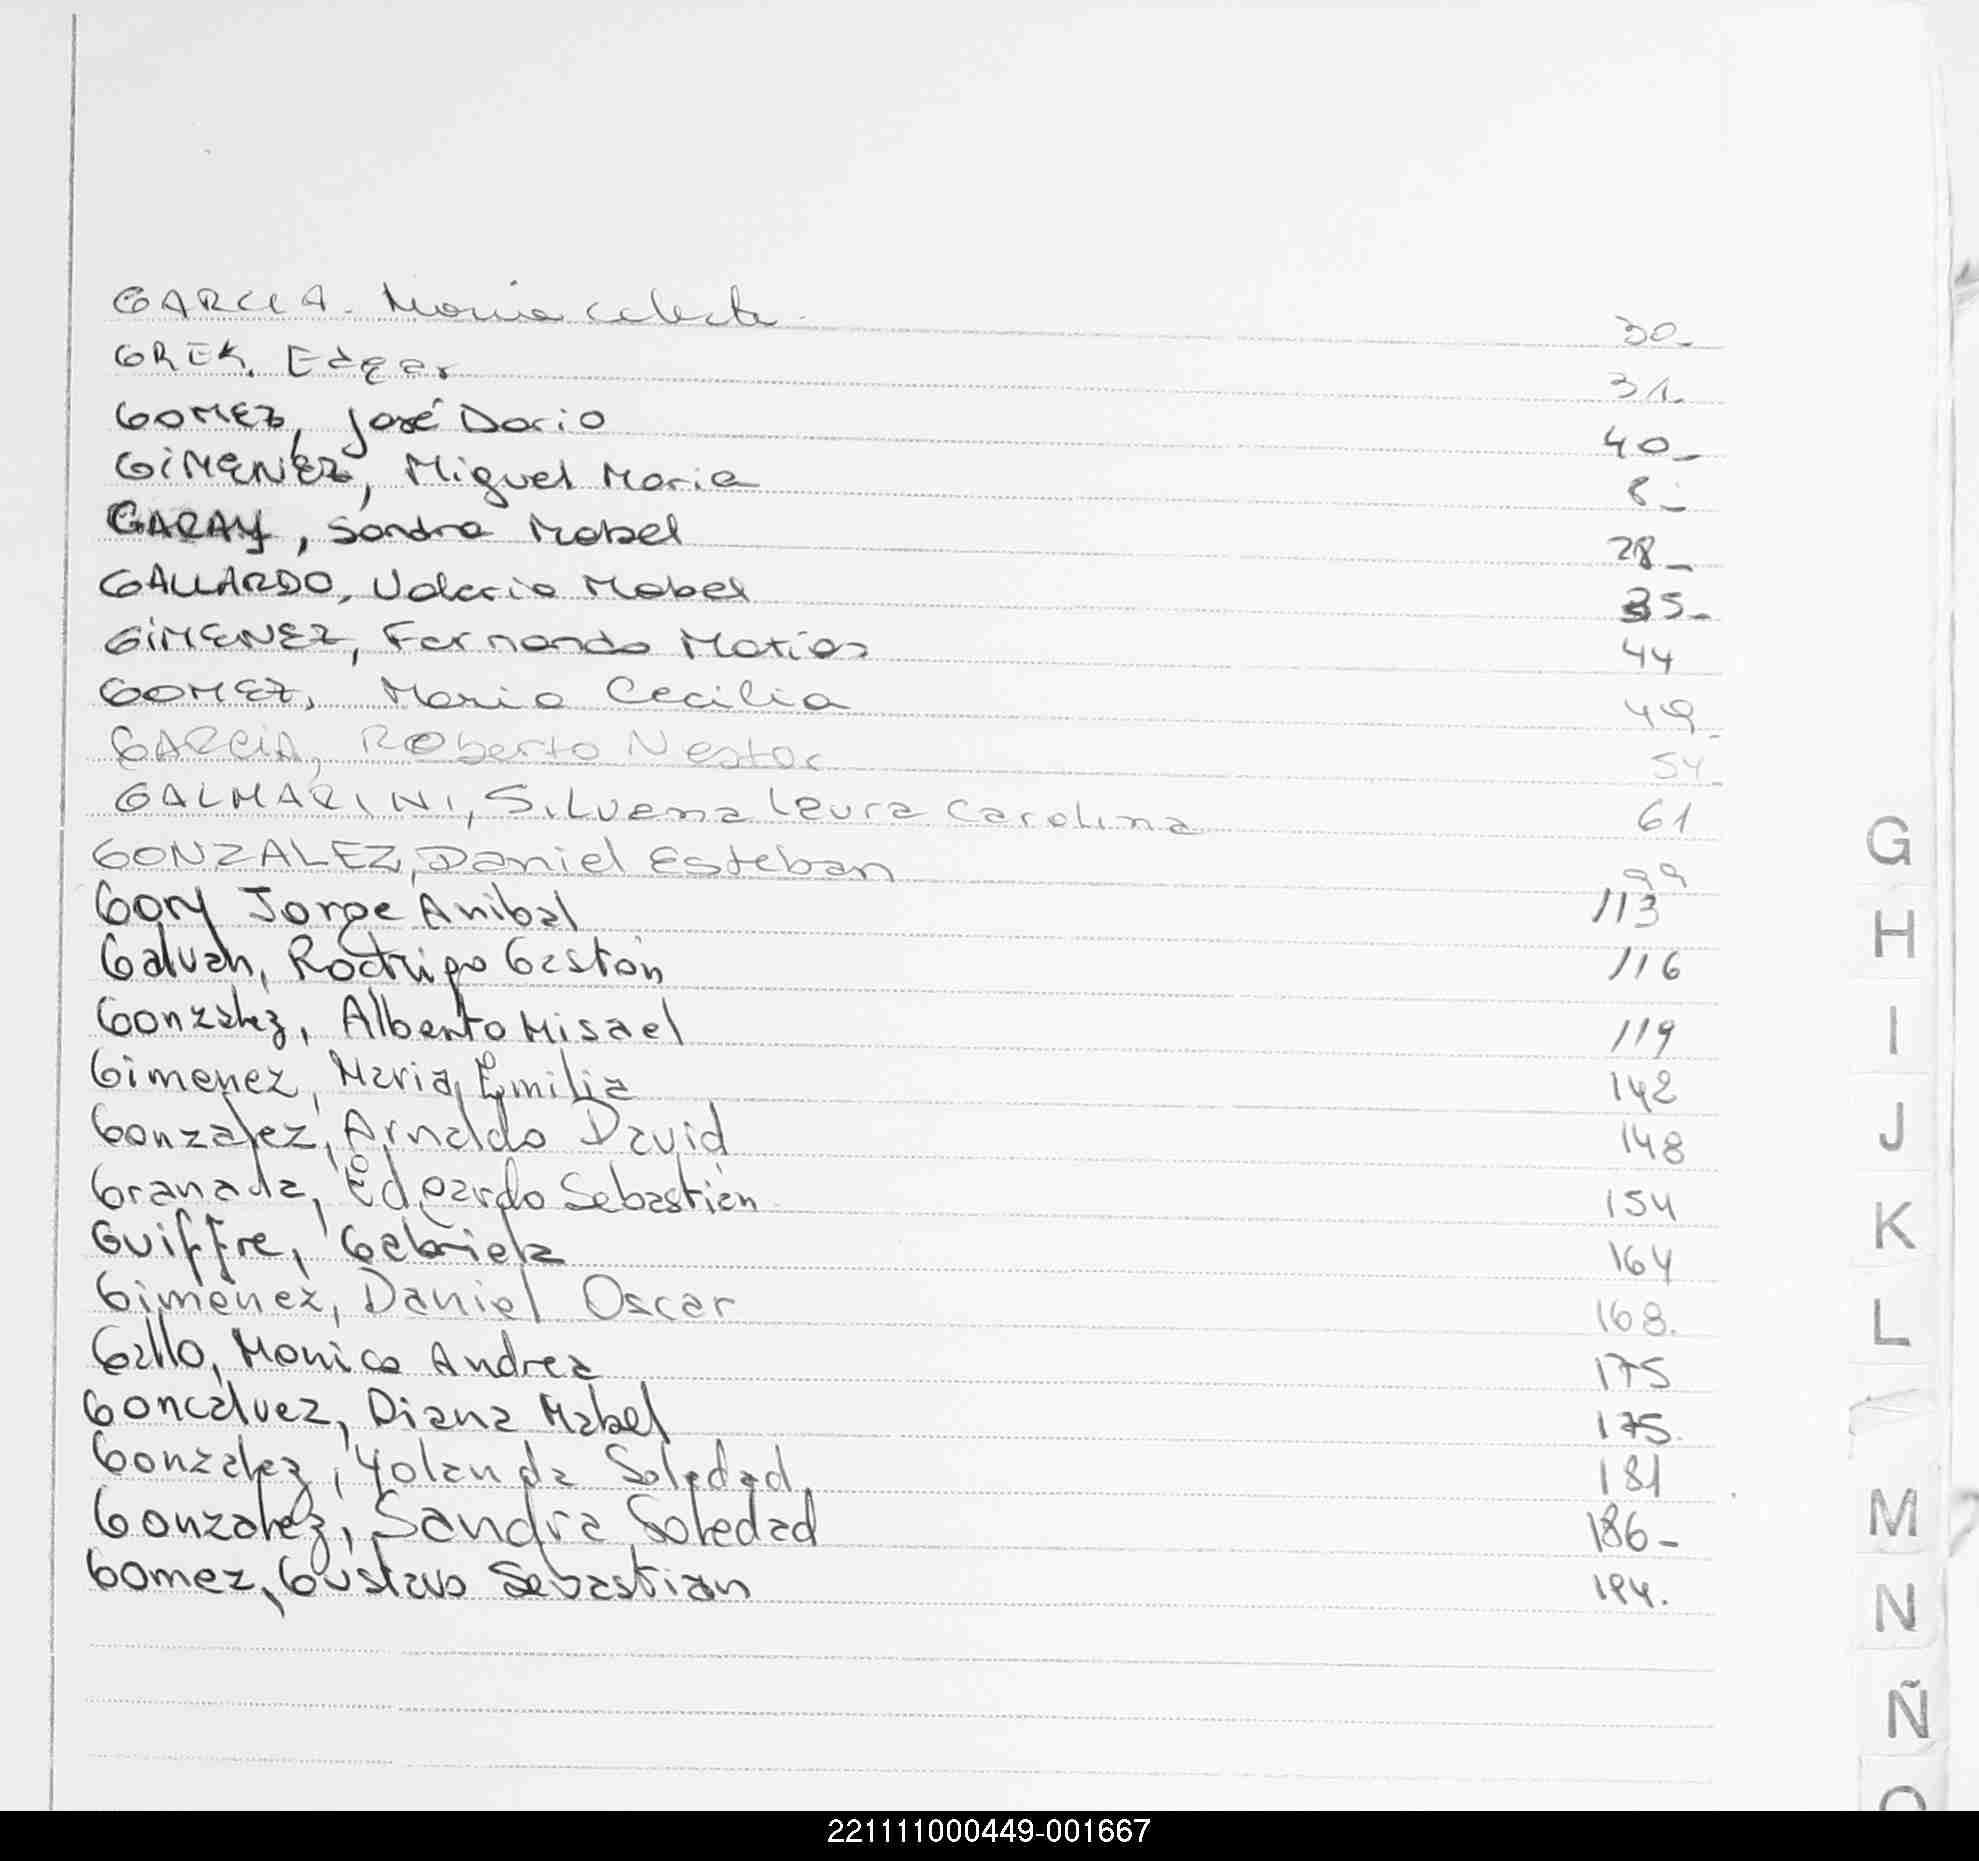 GARCIA. Maria Celeste. 30.-
GREK, Edgar 31.-
GOMEZ, José Dario 40.-
GIMENEZ, Miguel Maria 8.-
GARAY, Sandra Mabel 28.-
GALLARDO, Valeria Mabel 35.-
GIMENEZ, Fernando Matias 44
GOMEZ, Maria Cecilia 49.-
GARCIA, Roberto Nestor 54.-
GALMARINI, Silvana Laura Carolina 61
GONZALEZ, Daniel Esteban 99
Gory Jorge Anibal 113
Galvan, Rodrigo Gastón 116
Gonzalez, Alberto Misael 119
Gimenez, Maria Emilia 142
Gonzalez, Arnaldo David 148
Granada, Edgardo Sebastián 154
Guiffre, Gabriela 164
Gimenez, Daniel Oscar 168.
Gallo, Monica Andrea 175
Goncalvez, Diana Mabel 175.
Gonzalez, Yolanda Soledad 181
Gonzalez, Sandra Soledad 186-
Gomez, Gustavo Sebastian 194.
G
H
I
J
K
L
M
N
Ñ
O
221111000449-001667